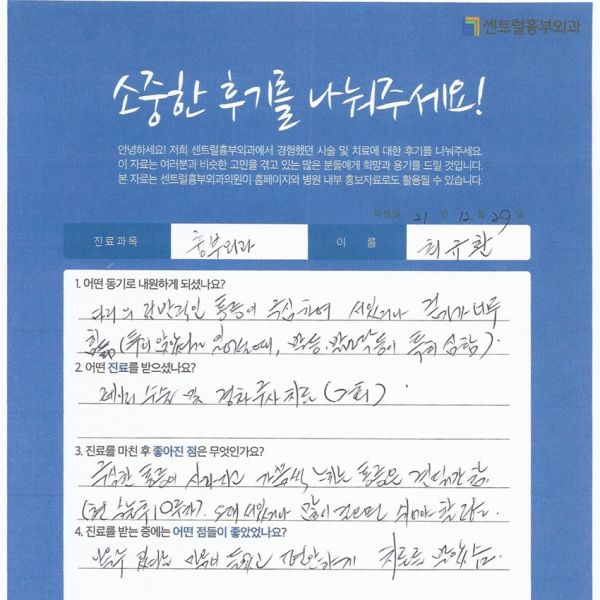 센트럴흉부외과
소중한 후기를 나눠주세요!
안녕하세요! 저희 센트럴흉부외과에서 경험했던 시술 및 치료에 대한 후기를 나눠주세요.
이 자료는 여러분과 비슷한 고민을 겪고 있는 많은 분들에게 희망과 용기를 드릴 것입니다.
본 자료는 센트럴흉부외과의원이 홈페이지와 병원 내부 홍보자료로도 활용될 수 있습니다.
작성일 21 년 12 월 29 일
진료과목 흉부외과 이 름 최규환
1. 어떤 동기로 내원하게 되셨나요?
다리의 전반적인 통증이 극심하여 서있거나 걷기가 너무
힘듦 (특히 앉았다가 일어날때, 발등, 발바닥 등이 특히 심함).
2. 어떤 진료를 받으셨나요?
레이저 수술 및 경화주사치료 (2회)
3. 진료를 마친 후 좋아진 점은 무엇인가요?
극심한 통증이 사라지고 가끔씩 느끼는 통증은 견딜만 함.
(현 수술후 10주차). 오래 서있거나 많이 걸으면 쉬어야
4. 진료를 받는 중에는 어떤 점들이 좋았었나요?
마음이 편안하게 치료를 받았음.